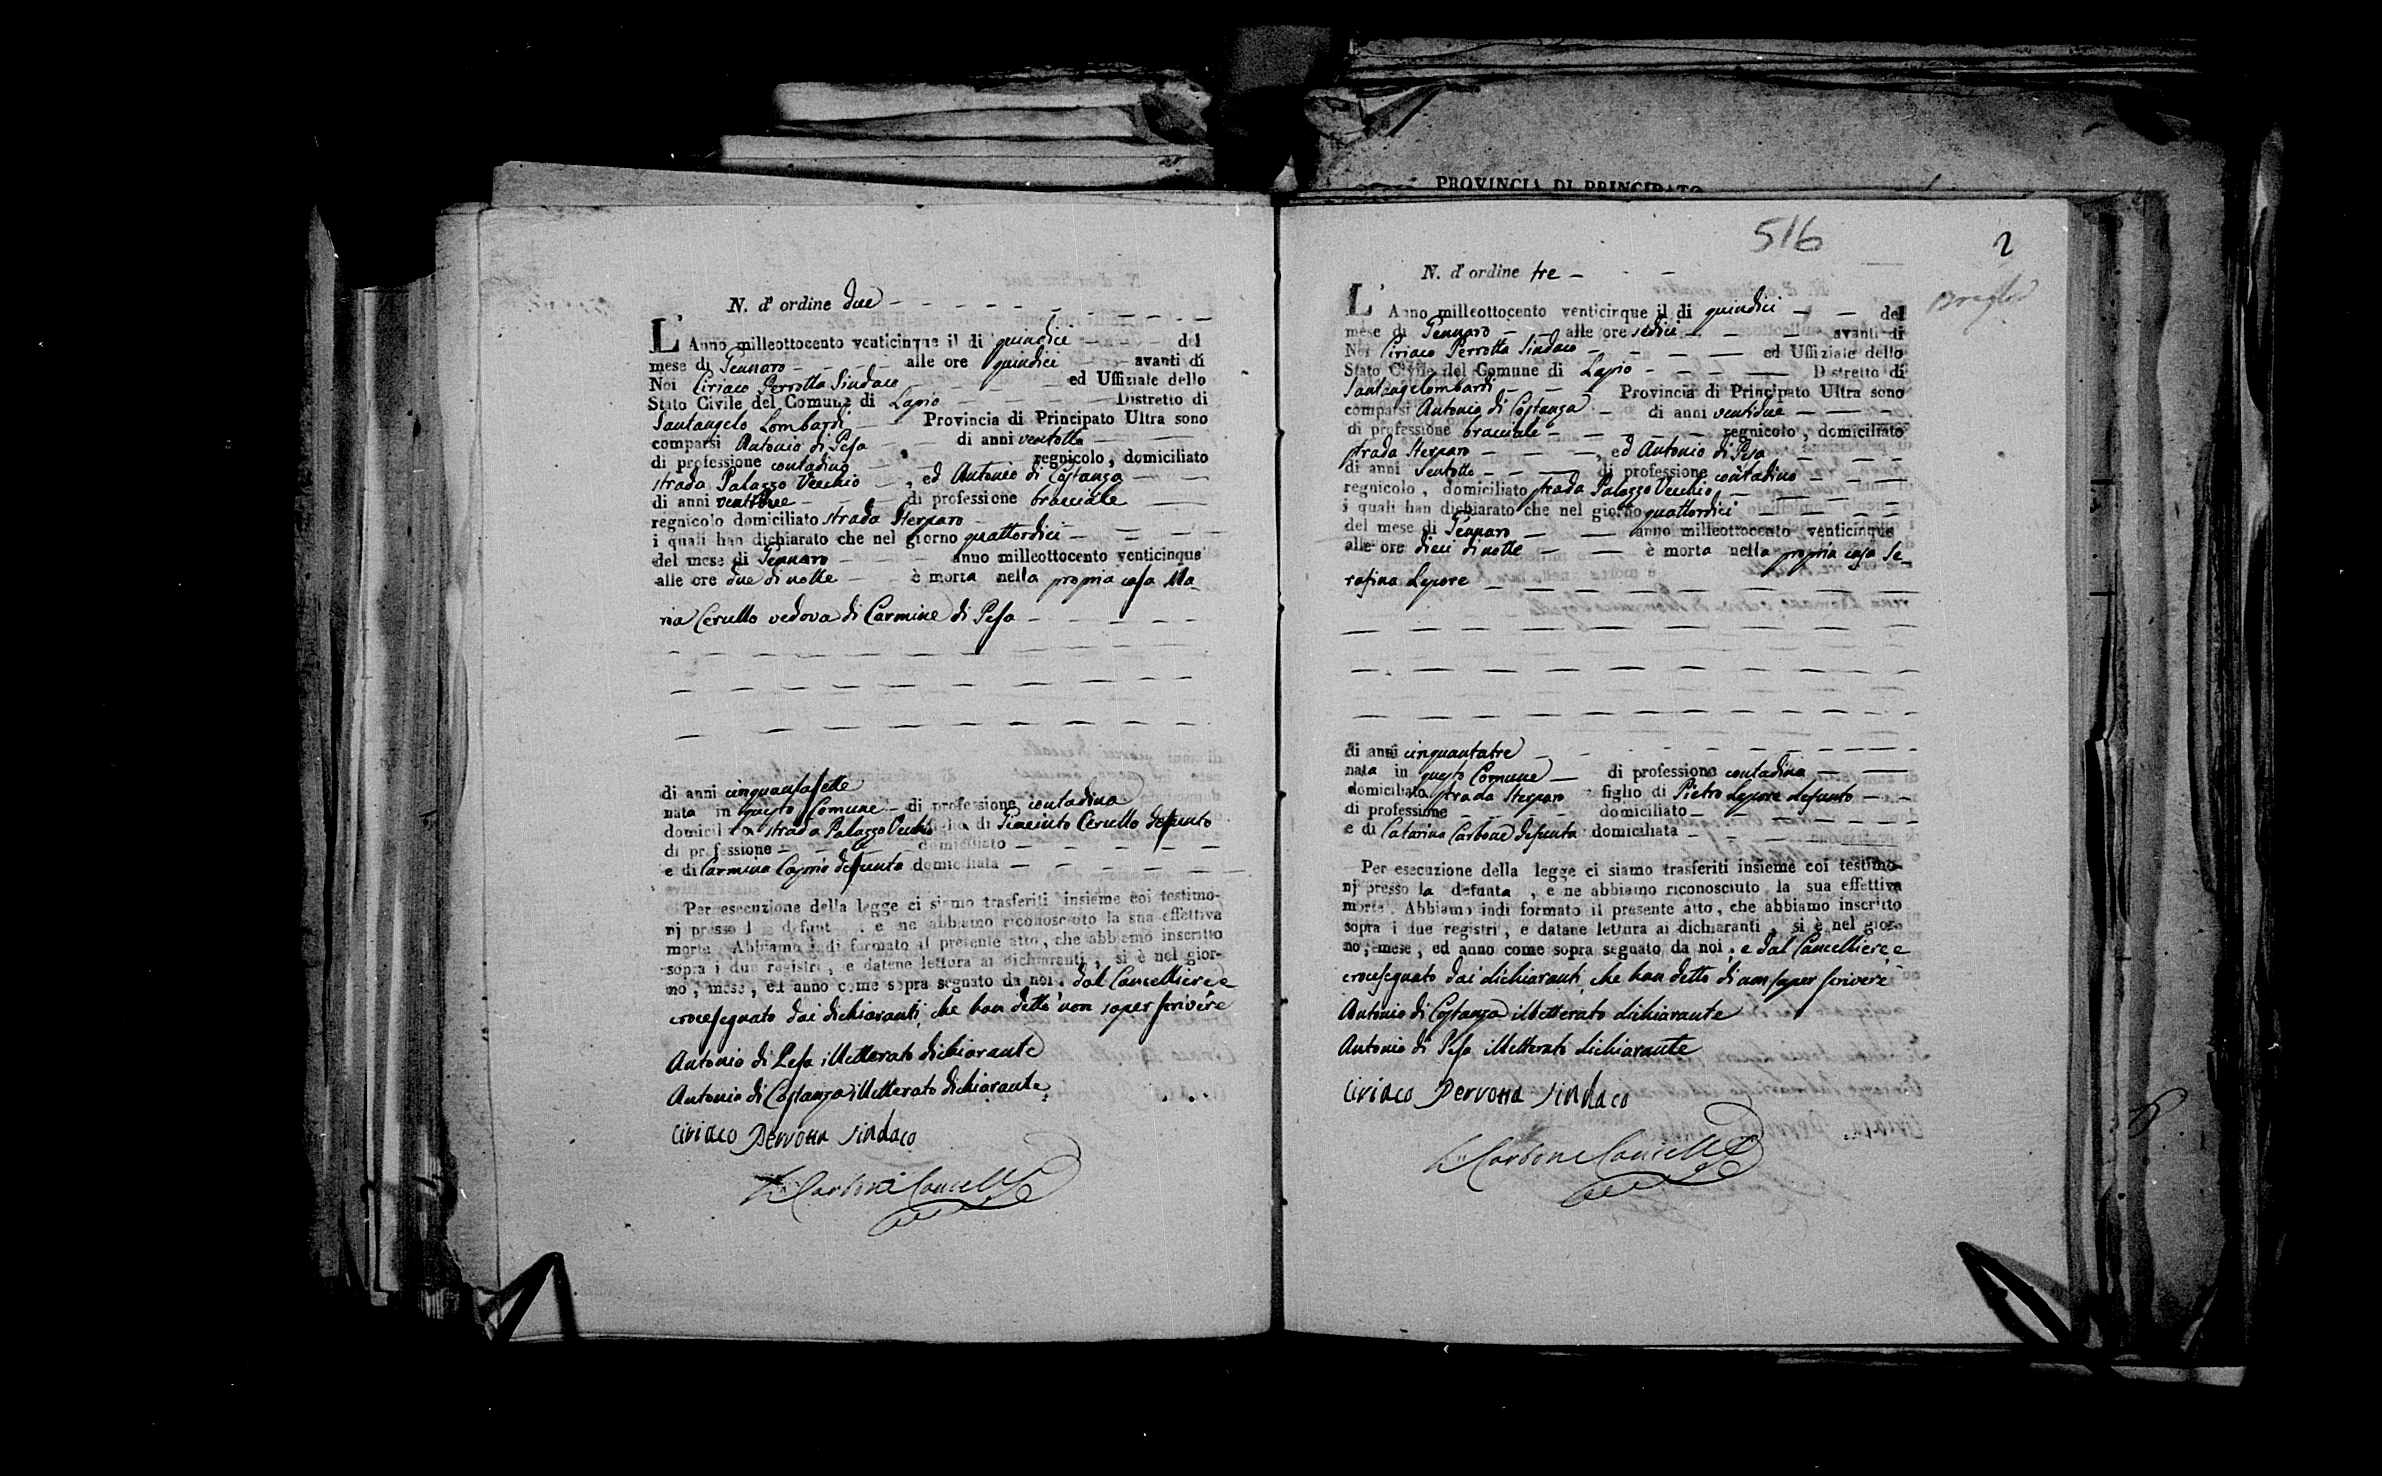 PROVINCIA DI PRINCIPATO
N. d' ordine due
L' Anno milleottocento venticinque il di quindici del
mese di Gennaro alle ore quindici avanti di
Noi Ciriaco Perrotta Sindaco ed Uffiziale dello
Stato Civile del Comune di Lapio Distretto di
Santangelo Lombardi Provincia di Principato Ultra sono
comparsi Antonio di Pesa di anni ventotto
di professione contadino regnicolo, domiciliato
strada Palazzo Vecchio, ed Antonio di Costanza
di anni ventidue di professione bracciale
regnicolo domiciliato strada Sterparo
i quali han dichiarato che nel giorno quattordici
del mese di Gennaro anno milleottocento venticinque
alle ore due di notte è morta nella propria casa Ma-
ria Cerullo vedova di Carmine di Pesa
di anni cinquantasette
nata in questo Comune di professione contadina
domicil strada Palazzo Vecchio di Giacinto Cerullo defunto
di professione domiciliato
e di Carmina Caprio defunta domiciliata
Per esecuzione della legge ci siamo trasferiti insieme coi testimo-
nj presso l defunt, e ne abbiamo riconosciuto la sua effettiva
morte. Abbiamo indi formato il presente atto, che abbiamo inscritto
sopra i due registri, e datene lettura ai dichiaranti, si è nel gior-
no, mese, ed anno come sopra segnato da noi, dal Cancelliere, e
crocesegnato dai dichiaranti, che han detto non saper scrivere
Antonio di Pesa illetterato dichiarante
Antonio di Costanza illetterato dichiarante
Ciriaco Perrotta Sindaco
Carbone Cancell.e
516
2
N. d' ordine tre
L' Anno milleottocento venticinque il di quindici del
mese di Gennaro alle ore sedici avanti di
Noi Ciriaco Perrotta Sindaco ed Uffiziale dello
Stato Civile del Comune di Lapio Distretto di
Santangelombardi Provincia di Principato Ultra sono
comparsi Antonio di Costanza di anni ventidue
di professione bracciale regnicolo, domiciliato
strada Sterparo, ed Antonio di Pesa
di anni ventotto di professione contadino
regnicolo, domiciliato strada Palazzo Vecchio
i quali han dichiarato che nel giorno quattordici
del mese di Gennaro anno milleottocento venticinque
alle ore dieci di notte è morta nella propria casa Se-
rafina Lepore
di anni cinquantatre
nata in questo Comune di professione contadina
domiciliata strada Sterparo figlio di Pietro Lepore defunto
di professione domiciliato
e di Catarina Carbone defunta domiciliata
Per esecuzione della legge ci siamo trasferiti insieme coi testimo-
nj presso la defunta, e ne abbiamo riconosciuto la sua effettiva
morte. Abbiamo indi formato il presente atto, che abbiamo inscritto
sopra i due registri, e datane lettura ai dichiaranti, si è nel gior-
no, mese, ed anno come sopra segnato da noi, e dal Cancelliere, e
crocesegnato dai dichiaranti, che han detto di non saper scrivere
Antonio di Costanza illetterato dichiarante
Antonio di Pesa illetterato dichiarante
Ciriaco Perrotta Sindaco
Carbone Cancell.e